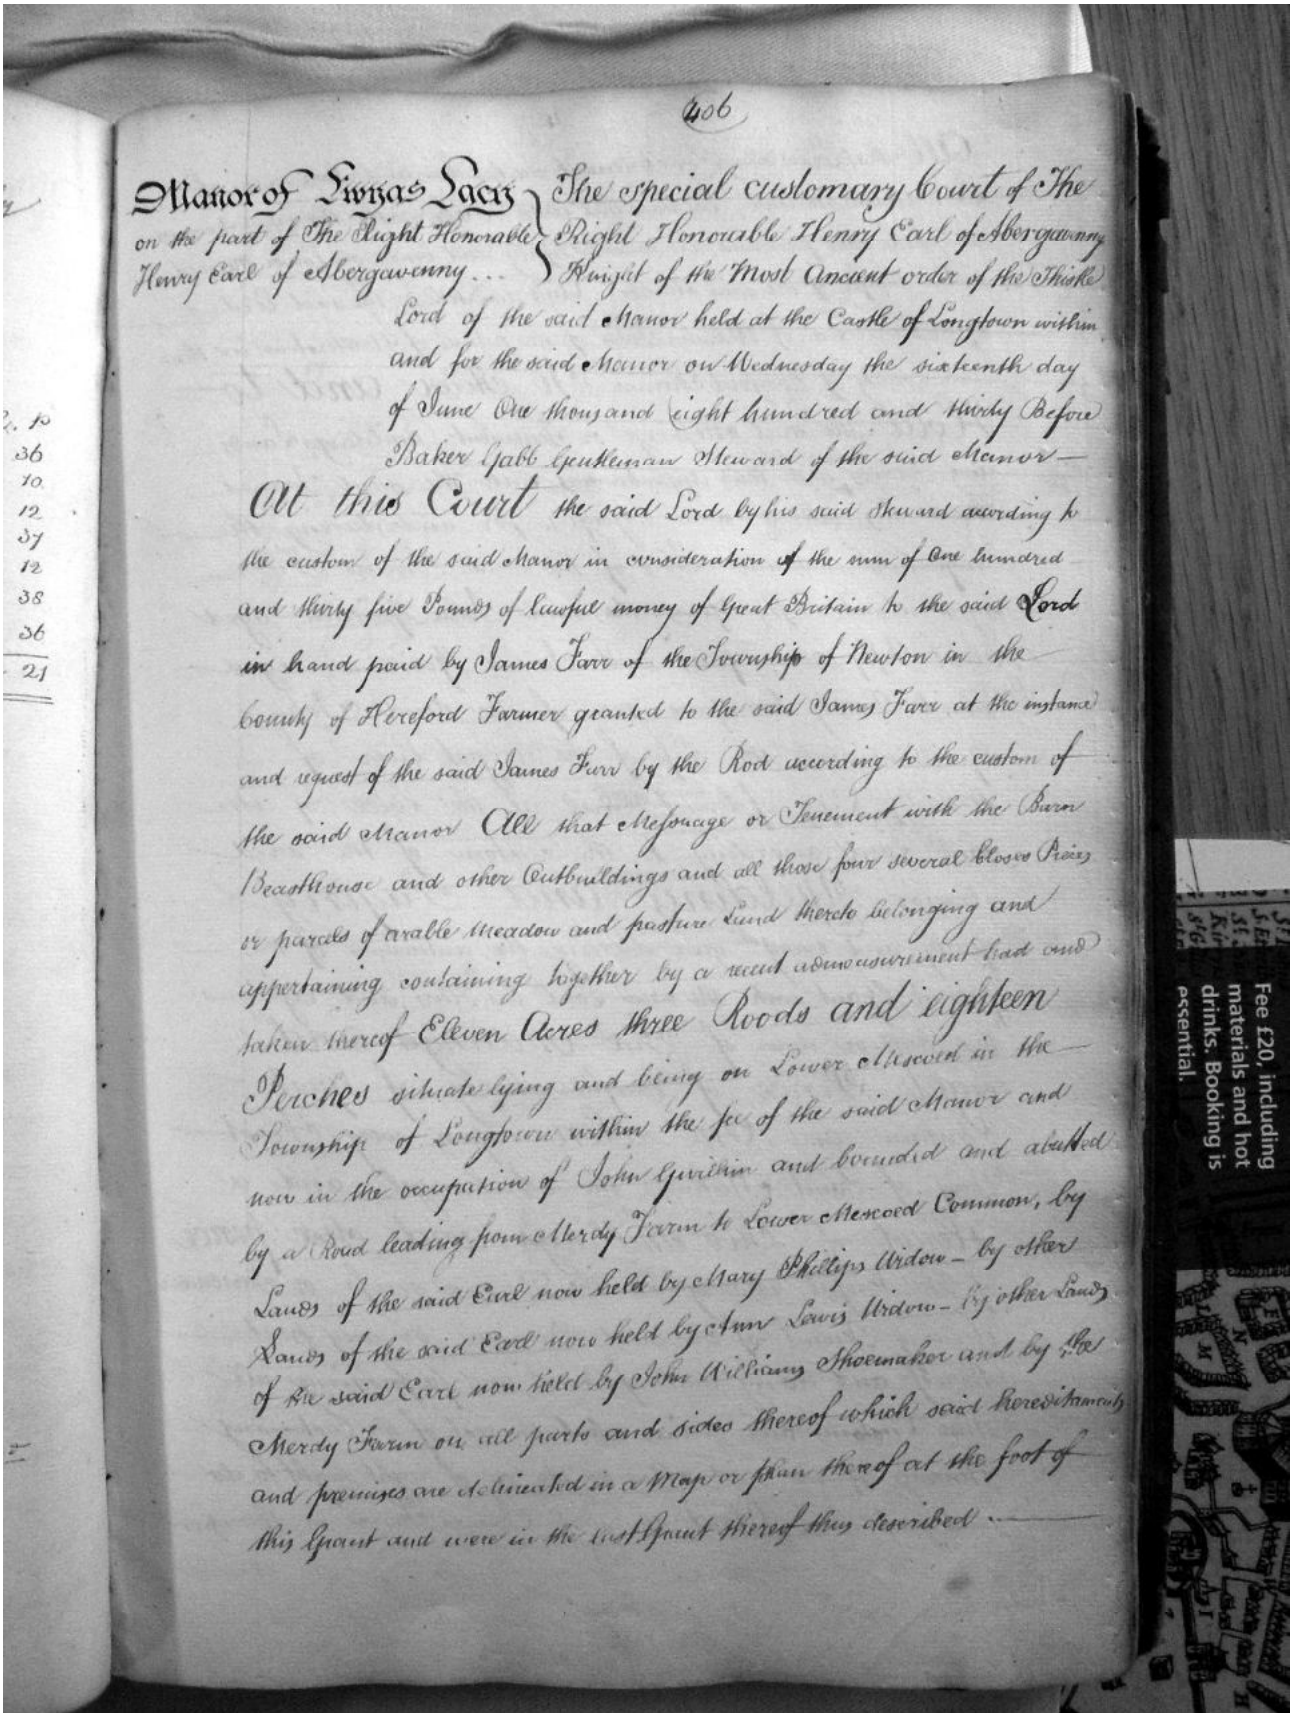 406
Manor of Ewyas Lacy
on the part of The Right Honorable
Henry Earl of Abergavenny...
The special customary Court of The
Right Honorable Henry Earl of Abergavenny
Knight of the Most Ancient order of the Thistle
Lord of the said Manor held at the Castle of Longtown within
and for the said Manor on Wednesday the sixteenth day
of June One thousand eight hundred and thirty Before
Baker Gabb Gentleman Steward of the said Manor —
At this Court the said Lord by his said Steward according to
the custom of the said Manor in consideration of the sum of One hundred
and thirty five Pounds of lawful money of Great Britain to the said Lord
in hand paid by James Farr of the Township of Newton in the
County of Hereford Farmer granted to the said James Farr at the instance
and request of the said James Farr by the Rod according to the custom of
the said Manor All that Messuage or Tenement with the Barn
Beasthouse and other Outbuildings and all those four several Closes Pieces
or parcels of arable meadow and pasture Land thereto belonging and
appertaining containing together by a recent admeasurement had and
taken thereof Eleven Acres three Roods and eighteen
Perches situate lying and being on Lower Mescoed in the
Township of Longtown within the fee of the said Manor and
now in the occupation of John Gwillim and bounded and abutted
by a Road leading from Merdy Farm to Lower Mescoed Common, by
Lands of the said Earl now held by Mary Phillips Widow – by other
Lands of the said Earl now held by Ann Lewis Widow – by other Lands
of the said Earl now held by John Williams Shoemaker and by the
Merdy Farm on all parts and sides thereof which said hereditaments
and premises are delineated in a Map or plan thereof at the foot of
this Grant and were in the last Grant thereof thus described . —
36
10
12
37
12
38
36
21
Fee £20, including
materials and hot
drinks. Booking is
essential.